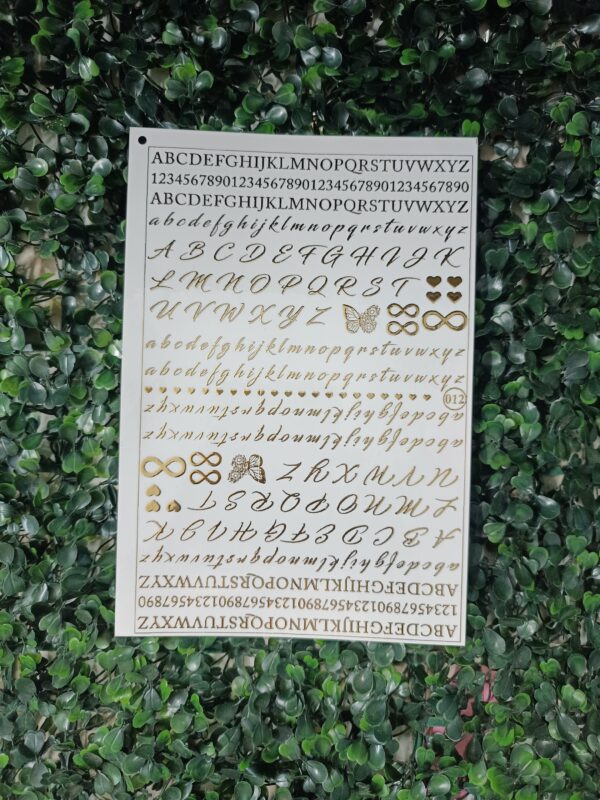 ABCDEFGHIJKLMNOPQRSTUVWXYZ
123456789012345678901234567890
ABCDEFGHIJKLMNOPQRSTUVWXYZ
abcdefghijklmnopqrstuvwxyz
ABCDEFGHIJK
LMNOPQRST
UVWXYZ
abcdefghijklmnopqrstuvwxyz
abcdefghijklmnopqrstuvwxyz
012
abcdefghijklmnopqrstuvwxyz
abcdefghijklmnopqrstuvwxyz
UVWXYZ
LMNOPQRST
ABCDEFGHIJK
abcdefghijklmnopqrstuvwxyz
ABCDEFGHIJKLMNOPQRSTUVWXYZ
123456789012345678901234567890
ABCDEFGHIJKLMNOPQRSTUVWXYZ